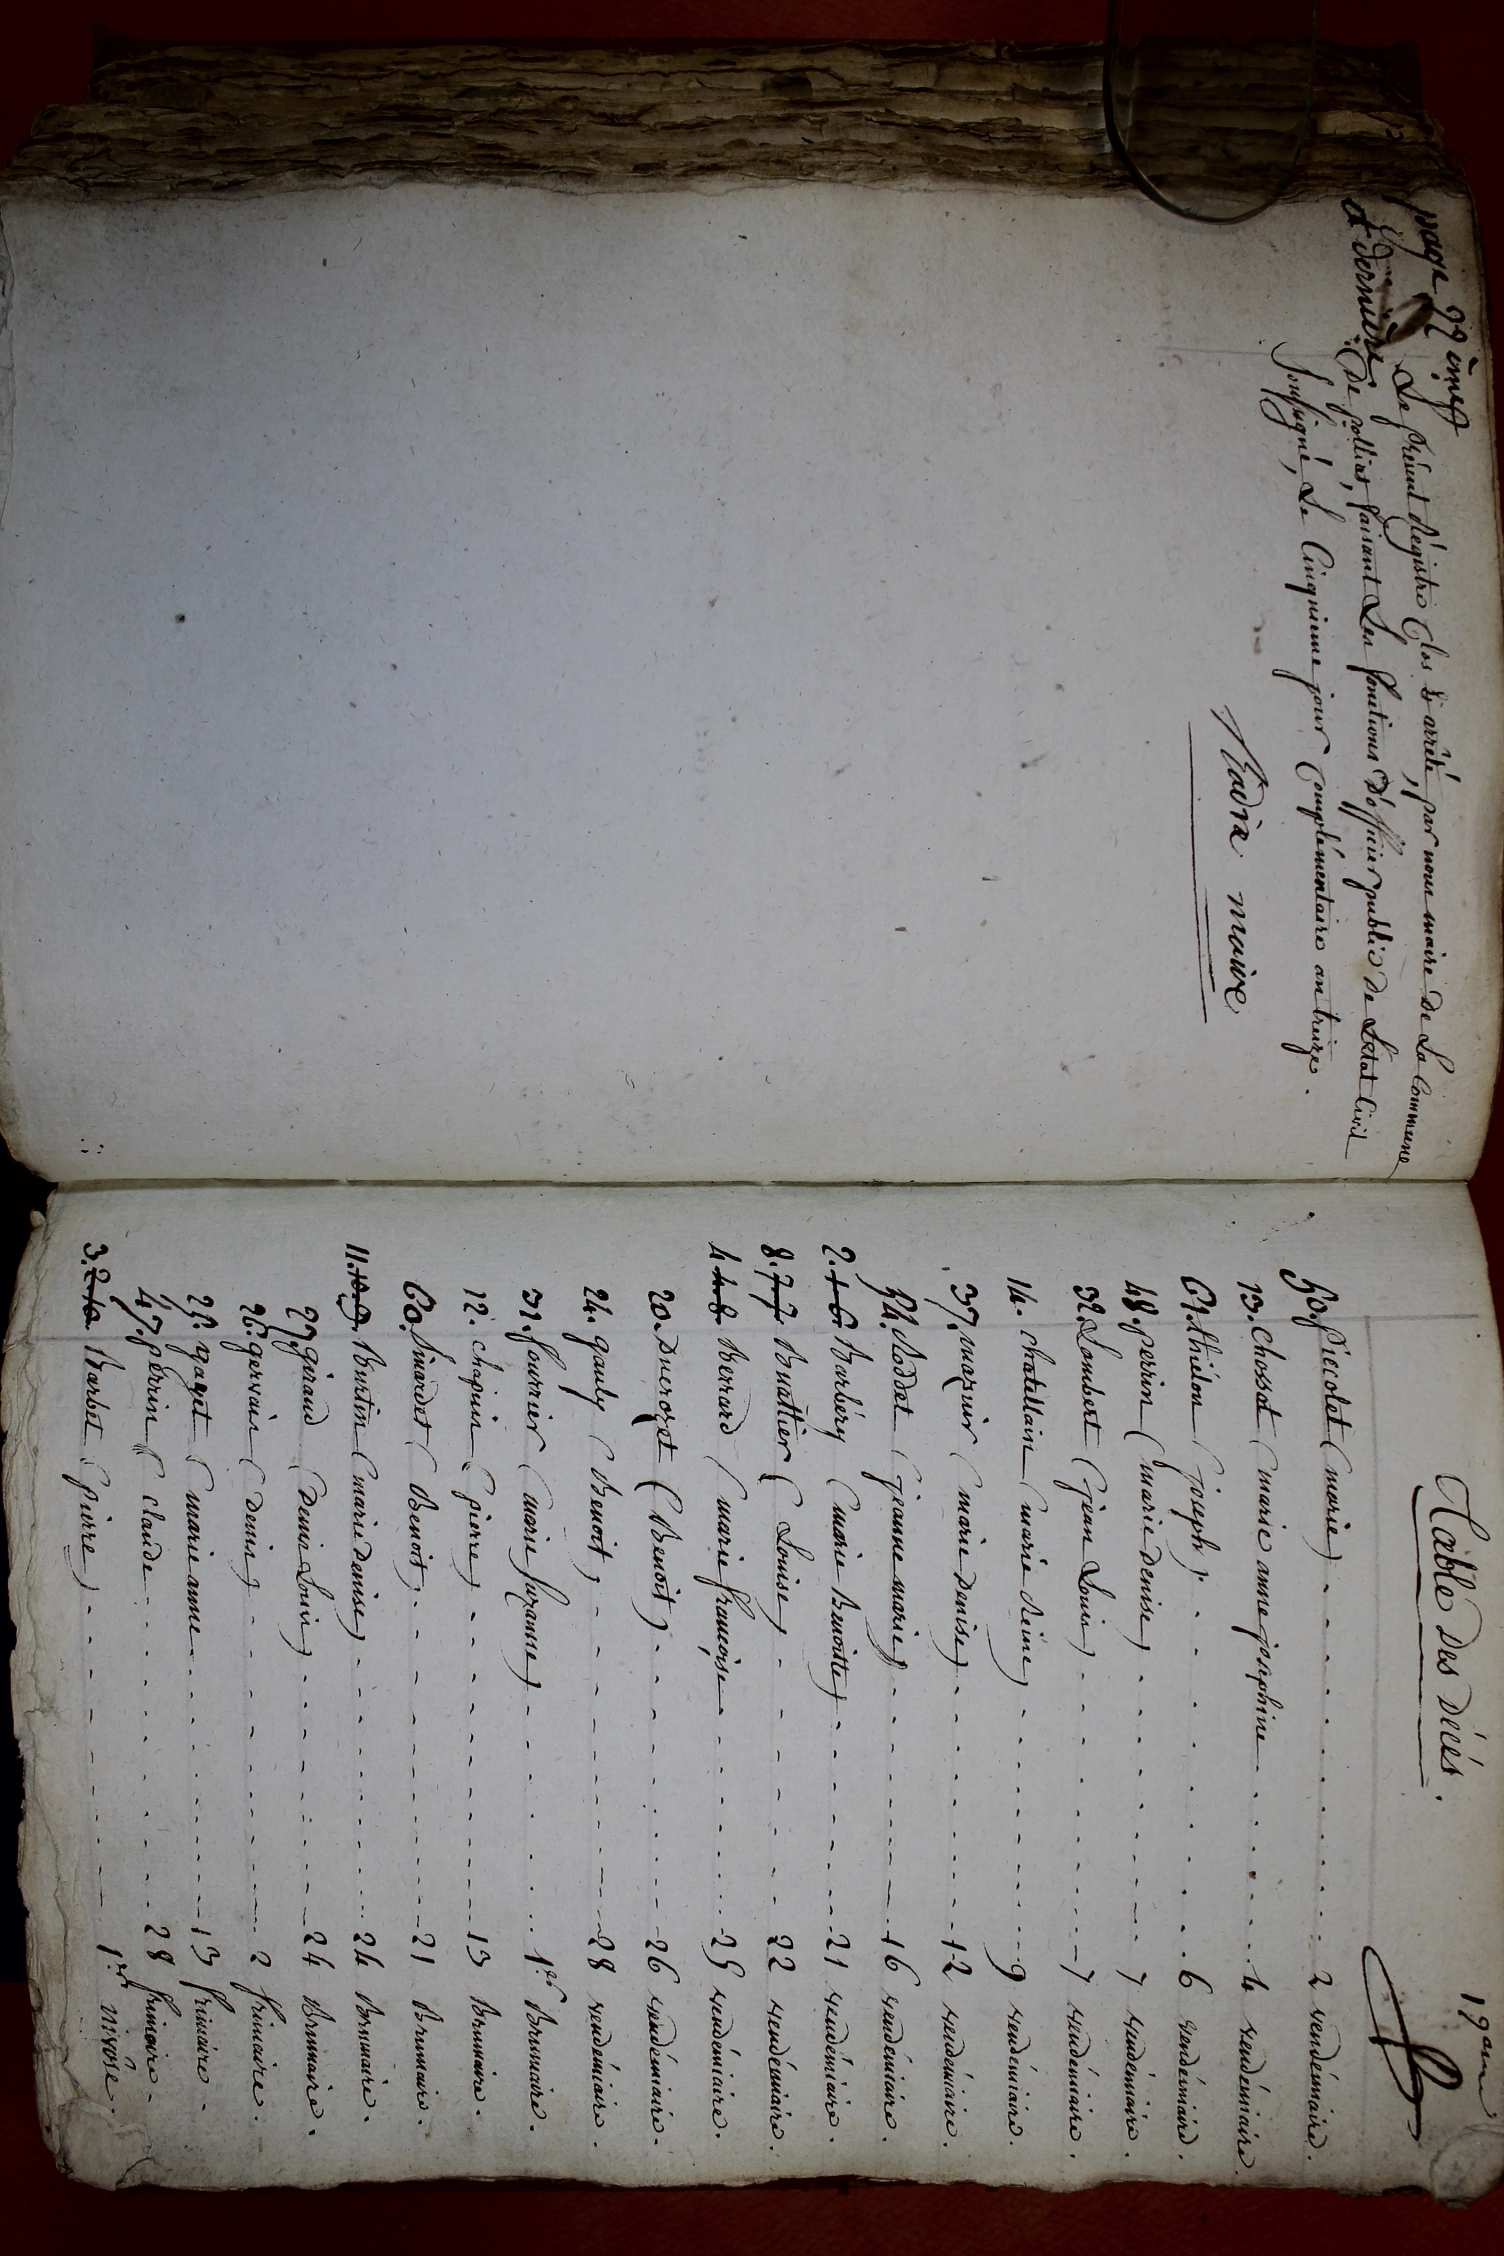 page 92 ème
et dernière
Le présent Régistre Clos & arrêté, par nous maire De La Commune
De polliat, faisant Les fonctions D'officier public De L'Etat Civil
soussigné, Le Cinquieme jour Complémentaire an treize.
maire
Table Des Décés.
50. Piccolet (marie) 2 vendémiaire.
13. Chossat (marie anne josephine 4 vendémiaire.
61. thiélon (joseph) 6 vendémiaire.
48. perrin (marie denise) 7 vendémiaire.
32. Lombert (jean Louis) 7 vendémiaire.
14. chatellain (marie Reine) 9 vendémiaire.
37. (marie denise) 12 vendémiaire.
54. (jeanne marie) 16 vendémiaire.
2. Barbéry (marie Benoitte) 21 vendémiaire.
8. Buattier (Louise) 22 vendémiaire.
4 Berrard (marie françoise 25 vendémiaire.
20. Ducrozet (Benoit) 26 vendémiaire.
24. gauly (Benoit) 28 vendémiaire.
31. fourrier (marie suzanne) 1er Brumaire.
12. chapuis (pierre) 13 Brumaire.
60. (Benoit) 21 Brumaire.
11. Burtin (marie denise) 24 Brumaire.
27. giraud (Denis Louis) 24 Brumaire.
26. gervais (Denis) 2 frimaire.
25. gayet (marie anne 13 frimaire.
47. perrin (claude 28 frimaire.
3. Barbet (pierre) 1er nivôse.